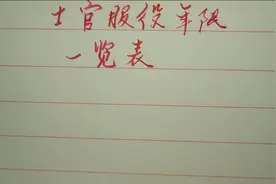 士官服役年限
一览表